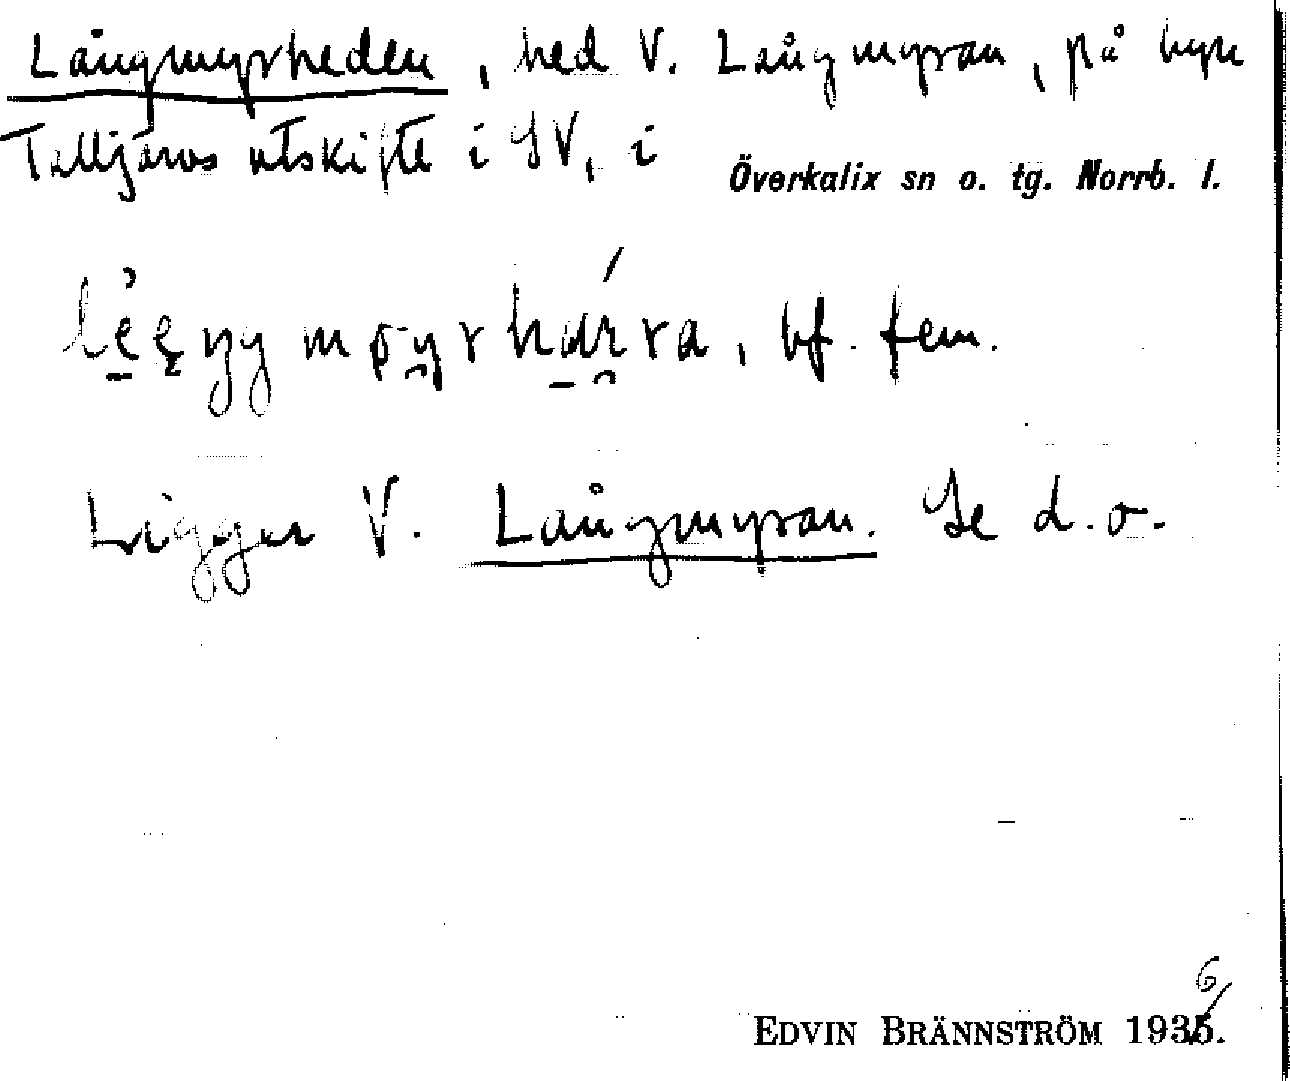 Långmyrheden, hed V. Långmyran, på byn
Talljärvs utskifte i SV, i Överkalix sn o. tg. Norrb. l.
bf. fem.
Ligger V. Långmyran. Se d.o.
6
EDVIN BRÄNNSTRÖM 1935.